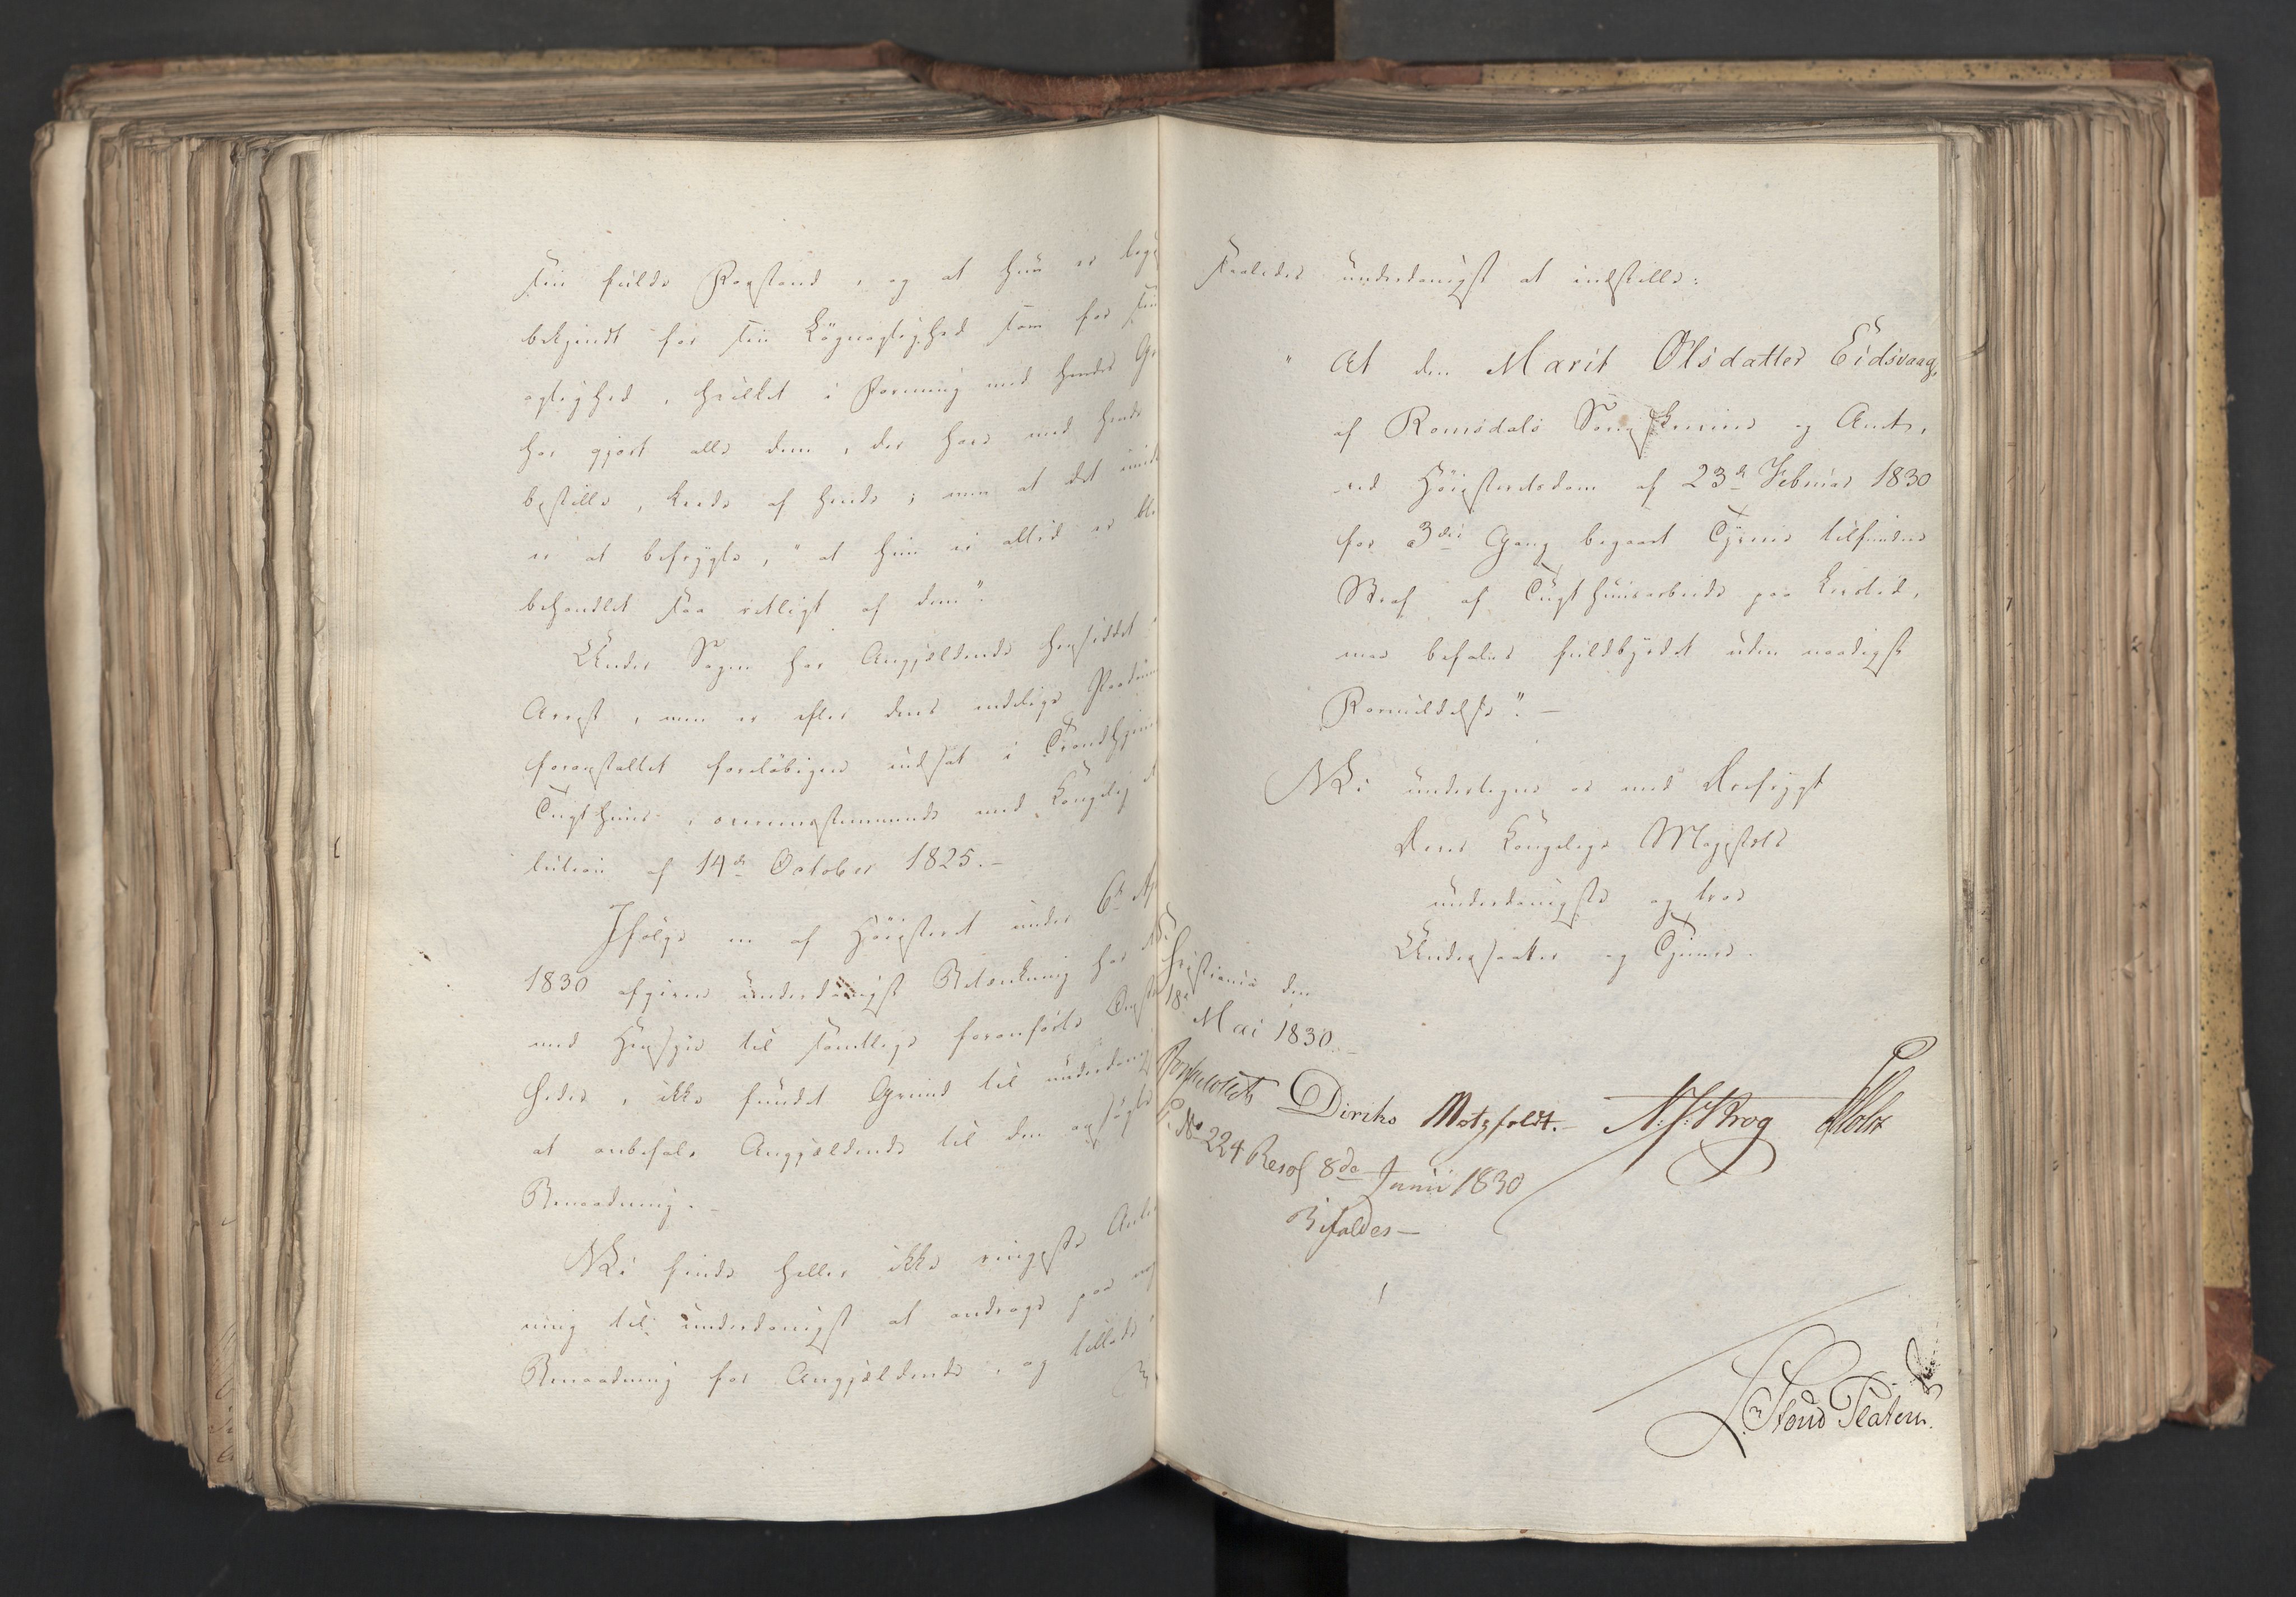 sin fulde Forstand, og at hun er lige
bekjendt for sin Løgnagtighed som for sin
agtighed, hvilket i Forening med hendes
har gjort alle dem, der have med hende
bestille, kede af hende; men at det imid
er at befrygte, "at hun ei altid er ble
behandlet saa retligt af dem".
Under Sagen har Angjeldende hensiddet i
Arrest, men er efter dens endelige Paadøm
foranstaltet foreløbigen indsat i Trondhjems
Tugthuus, overeensstemmende med Kongelig
lution af 14de October 1825.-
Ifølge en af Høiesteret under 6te Ap
1830 afgiven underdanigst Betænkning har
med Hensyn til samtlige foranførte Omstæ
heder, ikke fundet Grund til underdanigst
at anbefale Angjeldende til den ansøgte
Benaadning.-
Vi finde heller ikke ringeste Anled
ning til underdanigst at andrage paa no
Benaadning for Angjeldende, og tillade
saaledes underdanigst at indstille:
"At den Marit Olsdatter Eidsvaag,
af Romsdals Sorenskriverie og Amt,
ved Høiesteretsdom af 23de Februar 1830
for 3die Gang begaaet Tyverie tilfundne
Straf af Tugthuusarbeide paa Livstid,
maa befales fuldbyrdet uden naadigst
Formildelse".-
Vi undertegne os med Ærefrygt
Deres Kongelige Majestæts
underdanigste og troe
Undersaatter og Tjenere.
Christiania den
18de Mai 1830.-
Diriks Motzfeldt.- N. J. Krog Holst
P. No 224 Resol 8de Junii 1830
Bifaldes-
L. Stoud Platou.